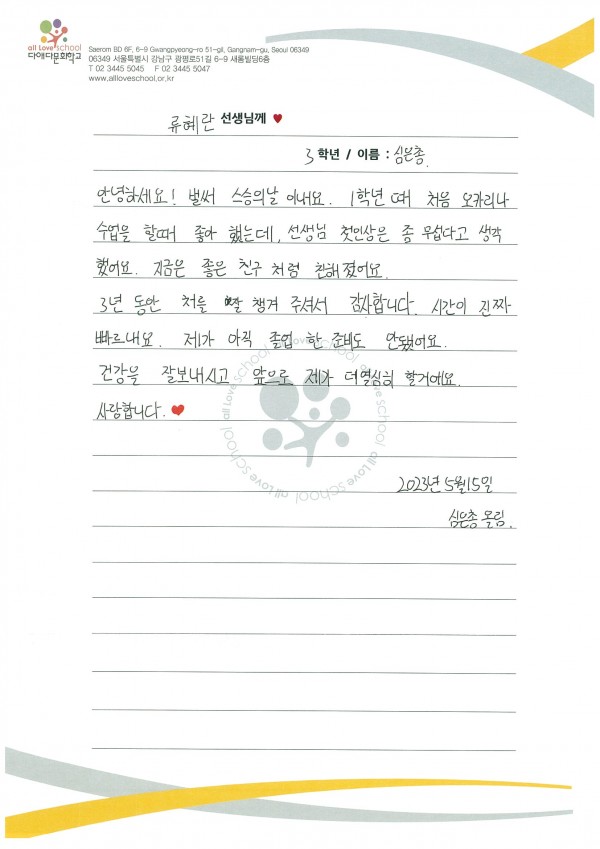 all Love school
다애다문화학교
Saerom BD 6F, 6-9 Gwangpyeong-ro 51-gil, Gangnam-gu, Seoul 06349
06349 서울특별시 강남구 광평로51길 6-9 새롬빌딩6층
T 02 3445 5045 F 02 3445 5047
www.alloveschool.or.kr
류혜란 선생님께 ♥
3 학년 / 이름 : 심은총
안녕하세요! 벌써 스승의날 이내요. 1학년 때 처음 오카리나
수업을 할때 좋아 했는데, 선생님 첫인상은 좀 무섭다고 생각
했어요. 지금은 좋은 친구 처럼 친해졌어요.
3년 동안 저를 잘 챙겨 주셔서 감사합니다. 시간이 진짜
빠르내요. 제가 아직 졸업 한 준비도 안됐어요.
건강을 잘보내시고 앞으로 제가 더열심히 할거예요.
사랑합니다. ♥
all Love school all Love school all Love school all Love school
2023년 5월 15일
심은총 올림.